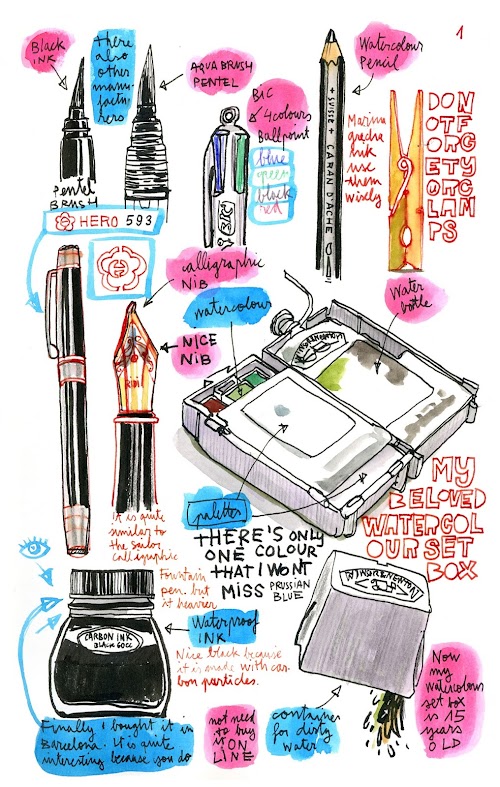 1
Black
INK
there
also
other
manu-
factu
rers
AQUABRUSH
PENTEL
Watercolour
Pencil
BIC
4colours
Ballpoint
blue
green
black
red
BIC
+ SUISSE + CARAN D'ACHE
Marina
grecha
ink
use
them
wisely
DON
OTF
ORG
ETY
OURC
LAM
PS
Pentel
BRUSH
HERO 593
calligraphic
NIB
watercolour
Water
bottle
NICE
NIB
WINSOR&NEWTON
MY
BELOVED
WATERCOL
OUR SET
BOX
palettes
THERE'S ONLY
ONE COLOUR
THAT I WON'T
MISS PRUSSIAN
BLUE
it is quite
similar to
the sailor
calligraphic
Fountain
pen but
it heavier
WINSOR&NEWTON
CARBON INK
BLACK 60CC
Waterproof
INK
Nice black because
it is made with car-
bon particles.
Finally I bought it in
Barcelona. It is quite
interesting because you do
not need
to buy
it ON
LINE
container
for dirty
water
Now
my
watercolour
set box
is 15
years
OLD